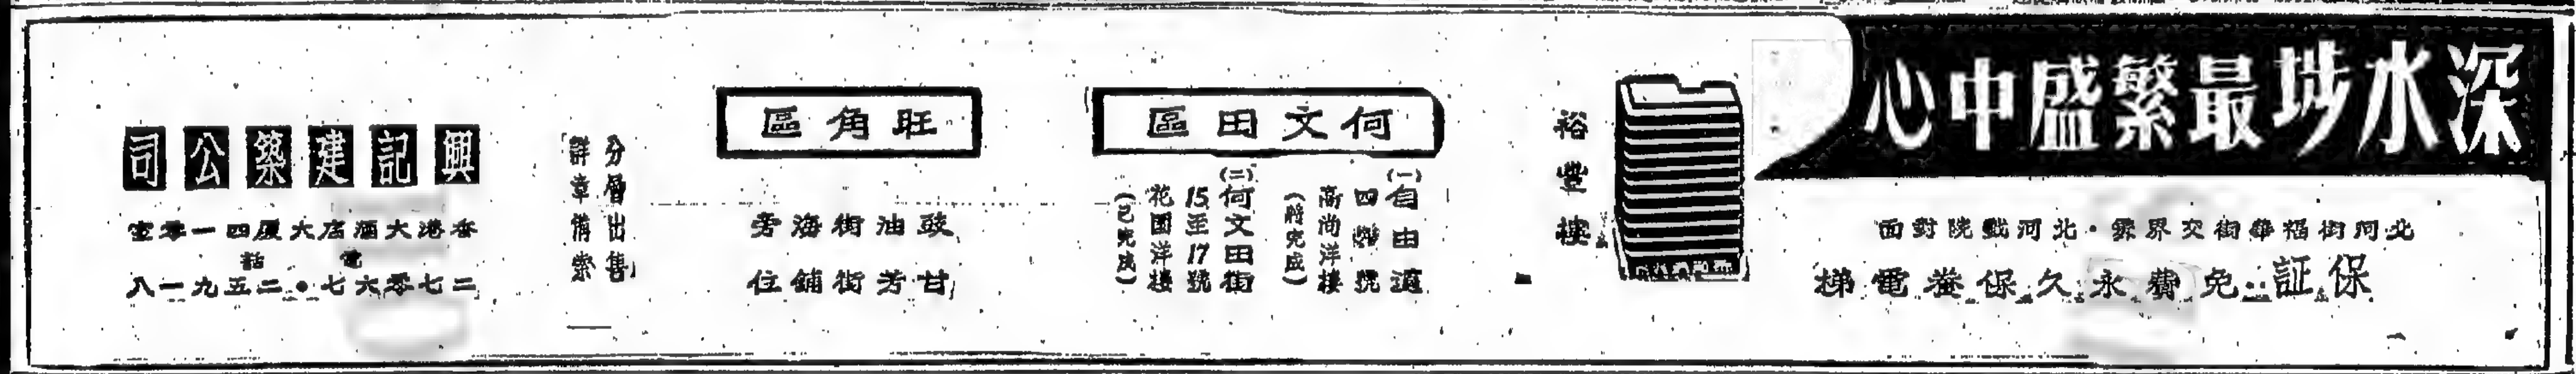 深水埗最繁盛中心
北河街福華街交界處·北河戲院對面
保証··免費永久保養電梯
裕豐樓
何文田區
(一)自由道
四號
高尚洋樓
(將完成)
(二)何文田街
15至17號
花園洋樓
(已完成)
旺角區
豉油街海旁
甘芳街鋪住
分層出售
詳章備索
興記建築公司
香港大酒店大厦四一零室
電話
二七零六七·二五九一八